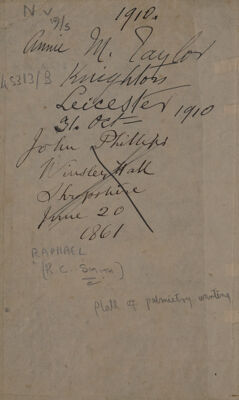 N.V.
19/5
1910.
Annie M. Taylor
Knighton
Leicester
31. Oct 1910
John Phillips
Winsley Hall
Shropshire
June 20
1861
RAPHAEL
(R. C. Smith)
of palmistry wanting